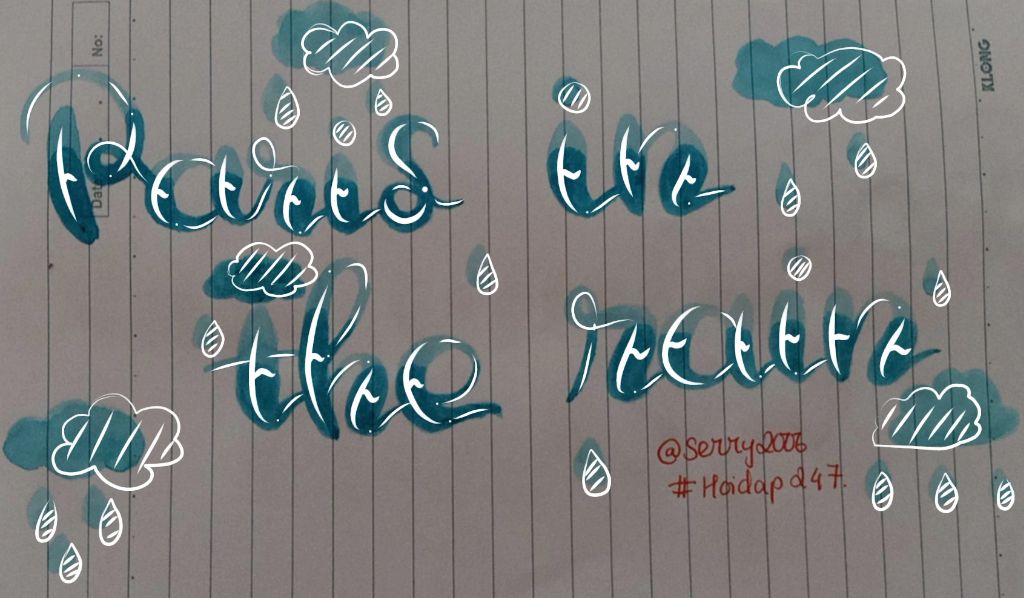 No:
Date
KLONG
Paris in
the rain
@Serry2006
#Hoidap247.